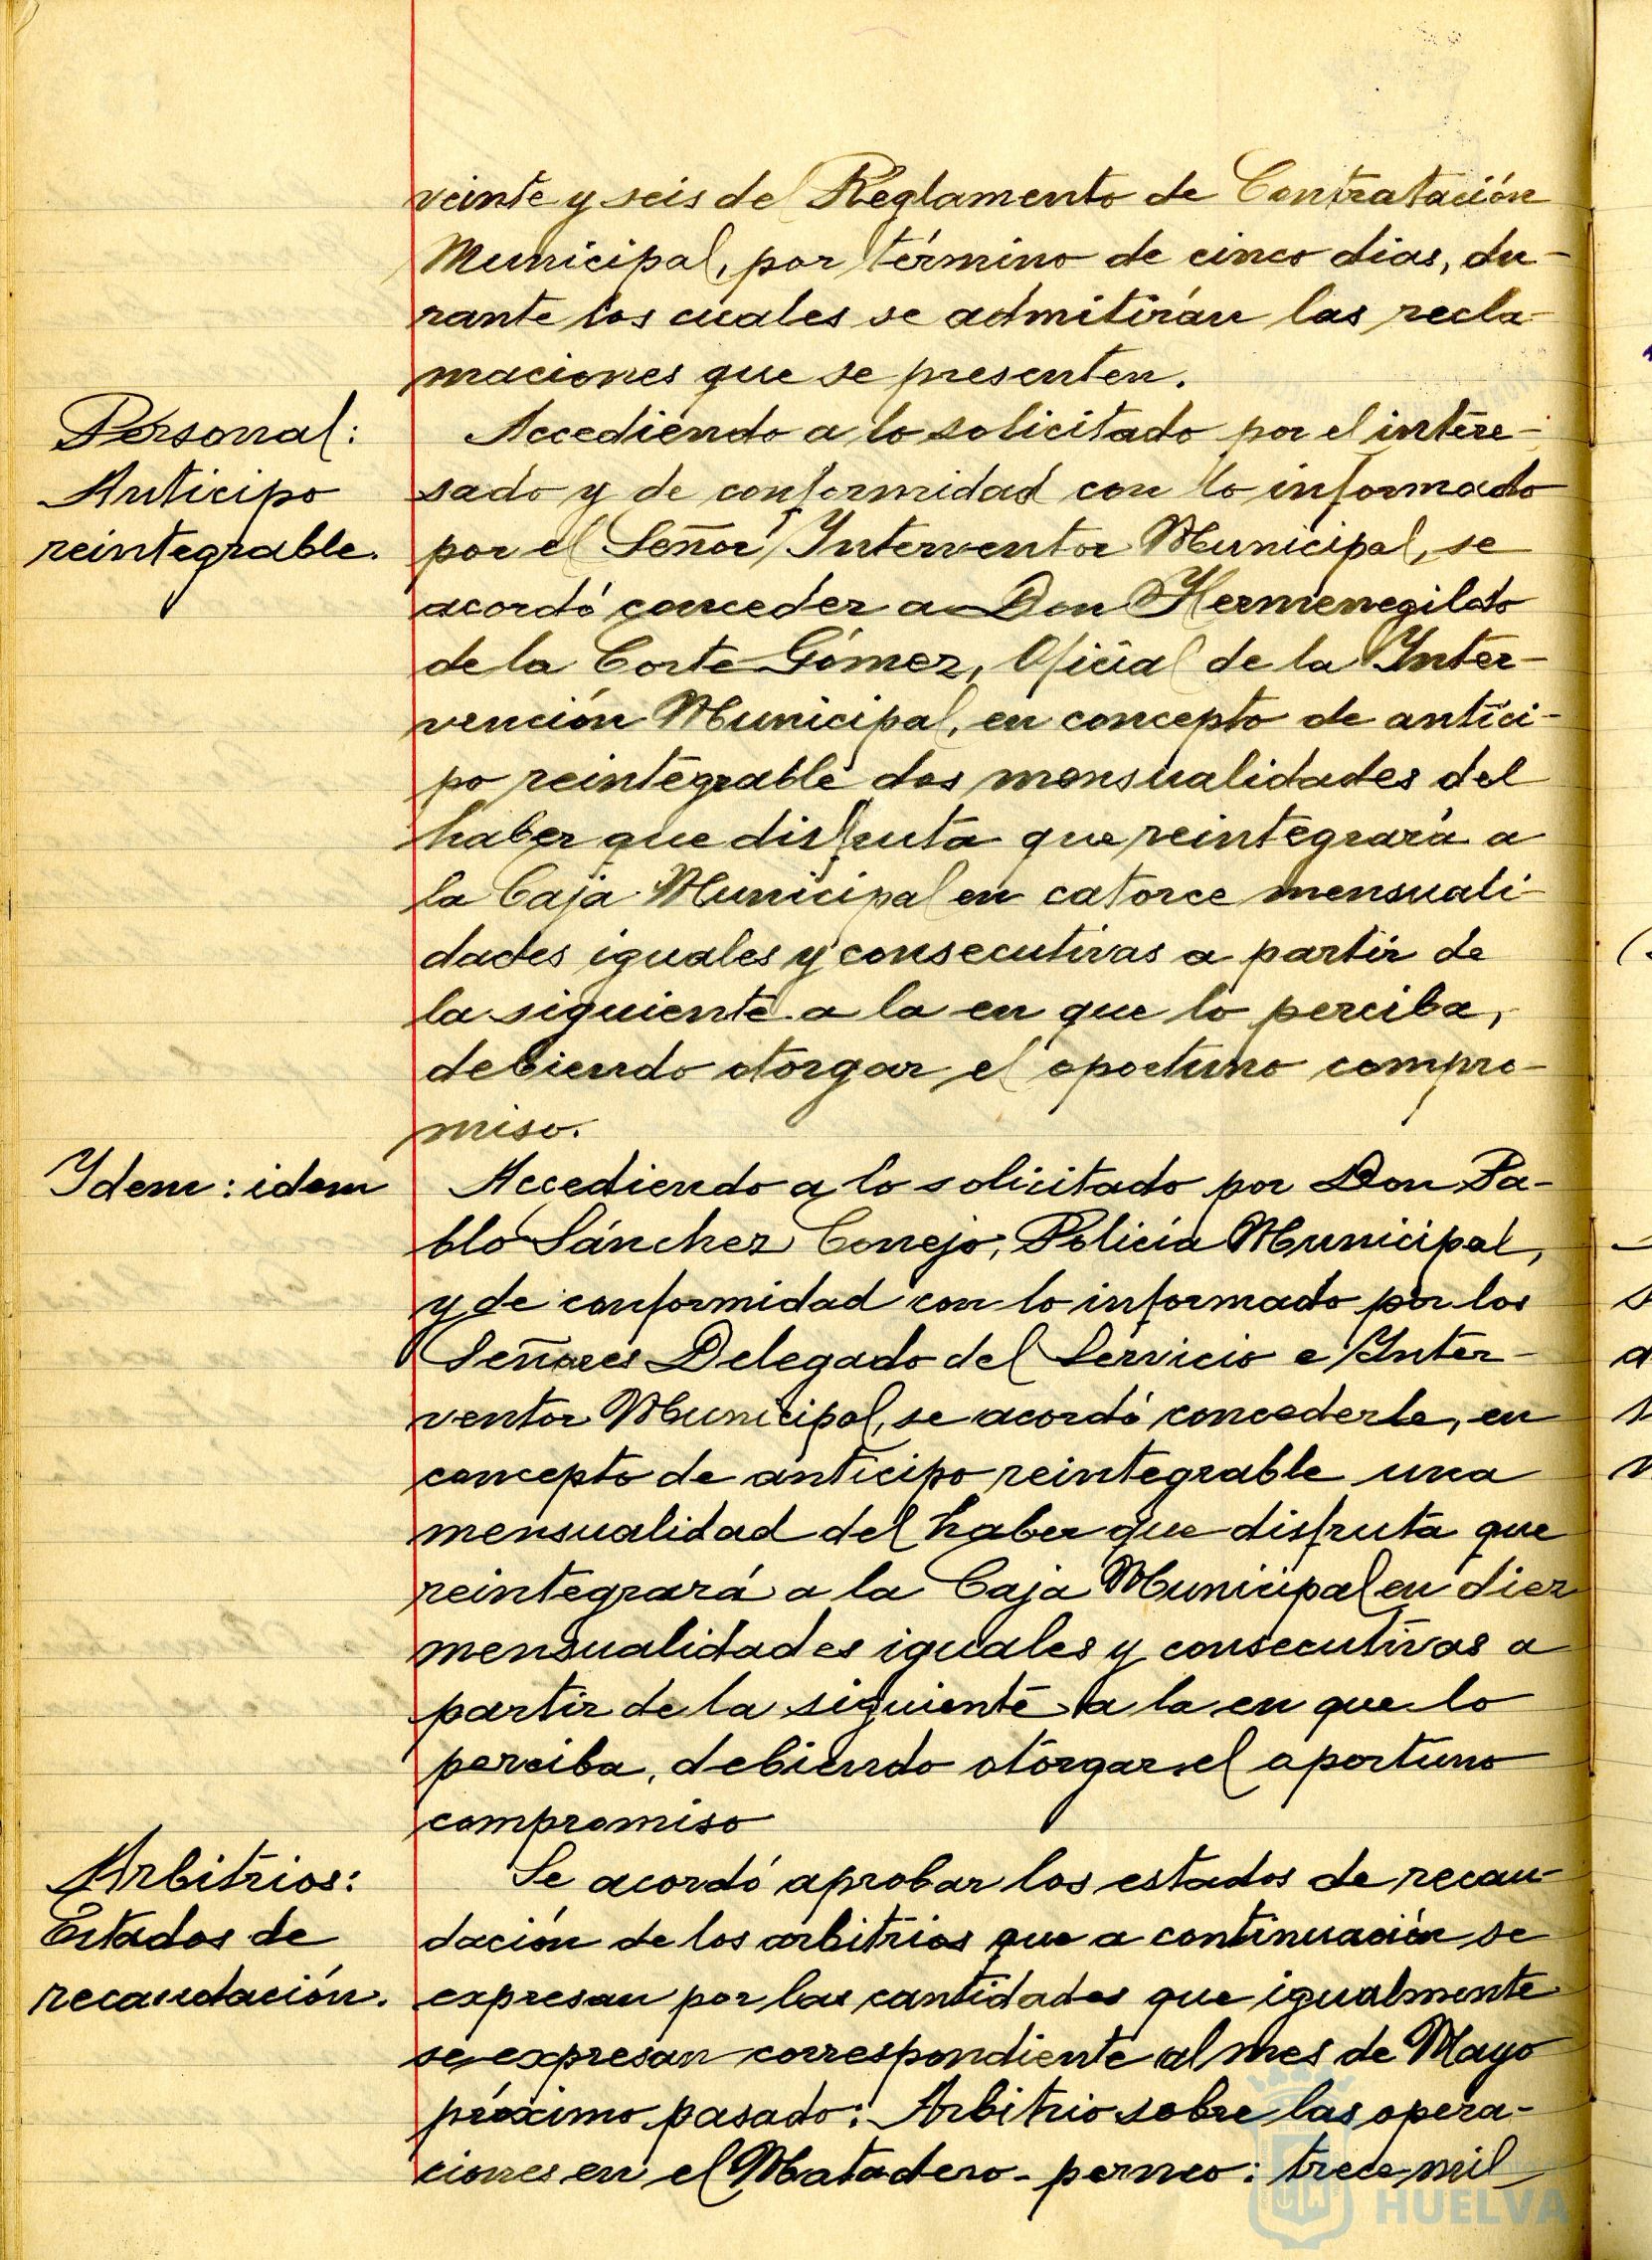 veinte y seis del Reglamento de Contratación
Municipal, por término de cinco dias, du-
rante los cuales se admitirán las recla-
maciones que se presenten.
Personal:
Anticipo
reintegrable.
Accediendo a lo solicitado por el intere-
sado y de conformidad con lo informado
por el Señor Interventor Municipal, se
acordó conceder a Don Hermenegildo
de la Corte Gómez, Oficial de la Inter-
vención Municipal, en concepto de antici-
po reintegrable dos mensualidades del
haber que disfruta que reintegrará a
la Caja Municipal en catorce mensuali-
dades iguales y consecutivas a partir de
la siguiente a la en que lo perciba,
debiendo otorgar el oportuno compro-
miso.
Idem: idem
Accediendo a lo solicitado por Don Pa-
blo Sánchez Conejo, Policía Municipal,
y de conformidad con lo informado por los
Señores Delegado del Servicio e Inter-
ventor Municipal, se acordó concederle, en
concepto de anticipo reintegrable una
mensualidad del haber que disfruta que
reintegrará a la Caja Municipal en diez
mensualidades iguales y consecutivas a
partir de la siguiente a la en que lo
perciba, debiendo otorgar el oportuno
compromiso
Arbitrios:
Estados de
recaudación.
Se acordó aprobar los estados de recau-
dación de los arbitrios que a continuación se
expresan por las cantidades que igualmente
se expresan correspondiente al mes de Mayo
próximo pasado: Arbitrio sobre las opera-
ciones en el Matadero-porneo: trece mil
HUELVA